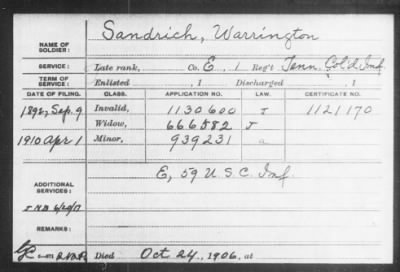 NAME OF SOLDIER: Sandrich, Warrington
SERVICE: Late rank, Co. E, 1 Reg't Tenn. Col'd Inf.
TERM OF SERVICE: Enlisted , 1 Discharged , 1
DATE OF FILING. CLASS. APPLICATION NO. LAW. CERTIFICATE NO.
1892, Sep. 9 Invalid, 1130600 J 1121170
Widow, 666582 J
1910 Apr 1 Minor, 939231 a
E, 59 U.S.C. Inf.
ADDITIONAL SERVICES:
REMARKS:
Died Oct 24, 1906, at